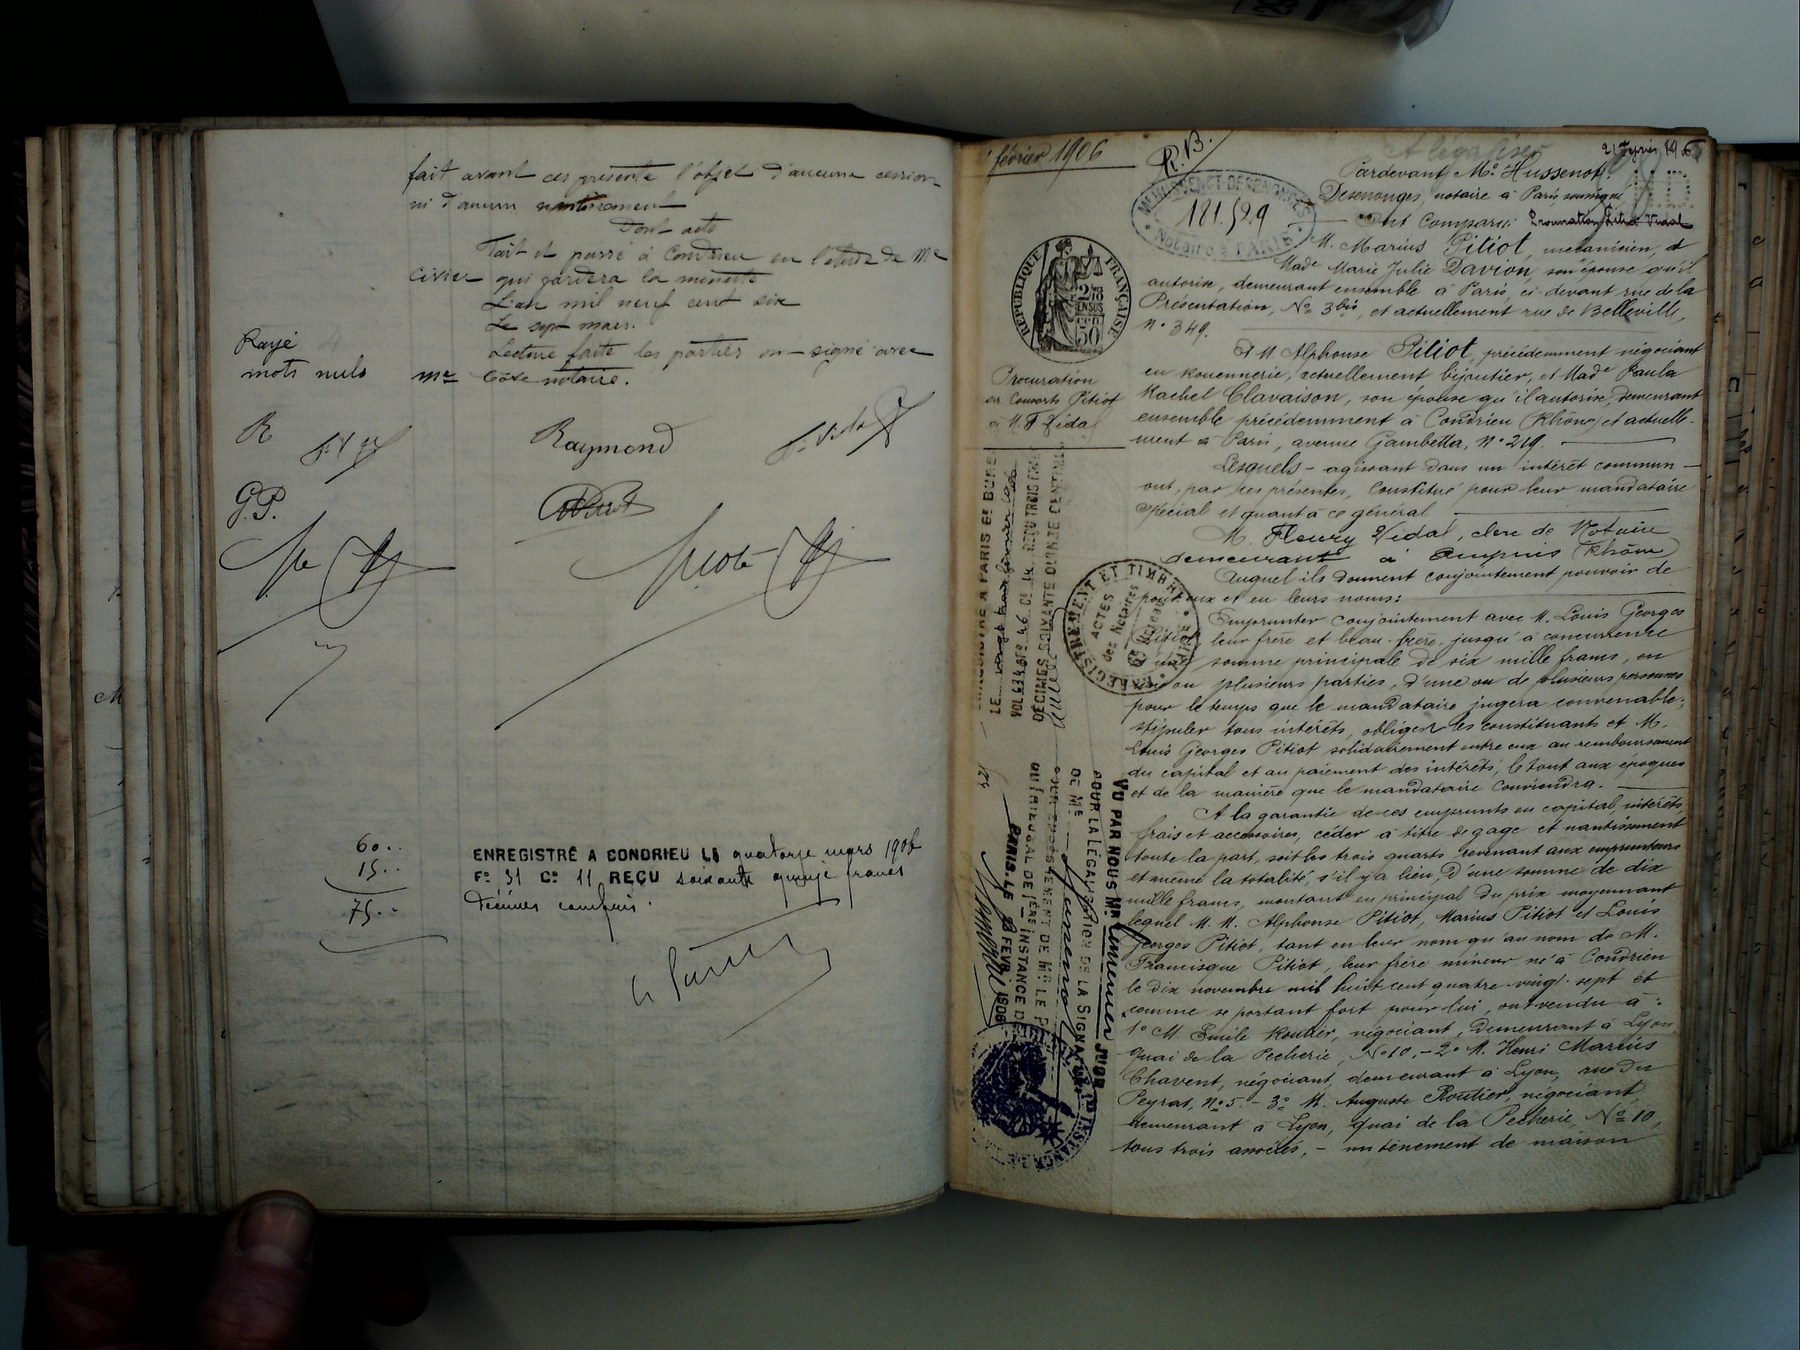 fait avant ces présente l'objet d'aucune cession
ni d'aucun nantissement
Dont acte
Fait et passé à Condrieu en l'étude de Me
Civier qui gardera la minute
L'an mil neuf cent six
Le sept mars.
Lecture faite les parties ont signé avec
Me notaire.
Rayé
mots nuls
R
Raymond
G.P.
60..
15..
75..
ENREGISTRÉ A CONDRIEU LE quatorze mars 1906
Fo 31 Co 11 REÇU soixante quinze francs
décimes compris.
février 1906
R.B.
A légaliser
21 février 1906
Pardevant Me Hussenot
Desenonges, notaire à Paris soussigné
Ont Comparu:
Procuration Pitiot Vidal
H.D.
Me HUSSENOT-DESENONGES
181,529
Notaire à PARIS
RÉPUBLIQUE FRANÇAISE
M. Marius Pitiot, mécanicien, et
Made Marie Julie Davion, son épouse qu'il
autorise, demeurant ensemble à Paris, ci-devant rue de la
Présentation, No 3 bis, et actuellement rue de Belleville,
No 349.
Et M. Alphonse Pitiot, précédemment négociant
en rouennerie, actuellement bijoutier, et Made Paula
Rachel Clavaison, son épouse qu'il autorise, demeurant
ensemble précédemment à Condrieu (Rhône) et actuelle-
ment à Paris, avenue Gambetta, No 219.
Procuration
Consorts Pitiot
à M. F. Vidal
Lesquels - agissant dans un intérêt commun -
ont, par ces présentes, constitué pour leur mandataire
spécial et quant à ce général
M. Fleury Vidal, clerc de Notaire
demeurant à Ampuis (Rhône)
Auquel ils donnent conjointement pouvoir de
pour eux et en leurs noms:
Emprunter conjointement avec M. Louis Georges
Pitiot leur frère et beau-frère, jusqu'à concurrence
d'une somme principale de six mille francs, en
une ou plusieurs parties, d'une ou de plusieurs personnes
pour le temps que le mandataire jugera convenable;
stipuler tous intérêts, obliger les constituants et M.
Louis Georges Pitiot solidairement entre eux au remboursement
du capital et au paiement des intérêts, le tout aux époques
et de la manière que le mandataire conviendra.
A la garantie de ces emprunts en capital, intérêts,
frais et accessoires, céder à titre de gage et nantissement
toute la part, soit les trois quarts, revenant aux emprunteurs
et même la totalité, s'il y a lieu, d'une somme de dix
mille francs, montant en principal du prix moyennant
lequel M.M. Alphonse Pitiot, Marius Pitiot et Louis
Georges Pitiot, tant en leur nom qu'au nom de M.
Francisque Pitiot, leur frère mineur né à Condrieu
le dix novembre mil huit cent quatre-vingt-sept et
comme se portant fort pour lui, ont vendu à:
1o M. Emile Routier, négociant, demeurant à Lyon
Quai de la Pecherie, No 10. - 2o M. Henri Marius
Chavent, négociant, demeurant à Lyon, rue du
Peyrat, No 5. - 3o M. Auguste Routier, négociant,
demeurant à Lyon, quai de la Pecherie, No 10,
tous trois associés, - un tènement de maison
ENREGISTREMENT ET TIMBRE
ACTES
des Notaires
PARIS
ENREGISTRÉ A PARIS 6e BUREAU
VU PAR NOUS Me JUGE
POUR LA LÉGALISATION DE LA SIGNATURE
DE Me
POUR EMPÊCHEMENT DE Mr LE P
DU TRIBUNAL DE 1ÈRE INSTANCE DE
PARIS, LE 23 FEVR 1906